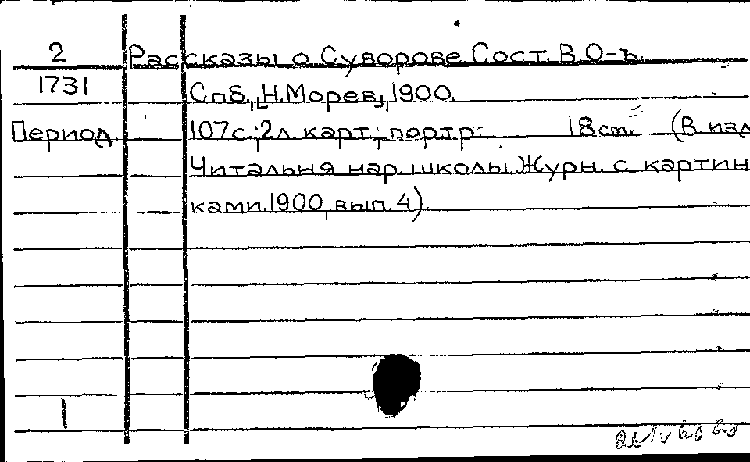 2 Рассказы о Суворове Сост. В.О-ъ.
1731 Спб., Н. Морев, 1900.
Период. 107с.; 2л. карт.; портр. 18см. (В изд.
Читальня нар. школы. Журн. с картин-
ками. 1900, вып. 4).
1